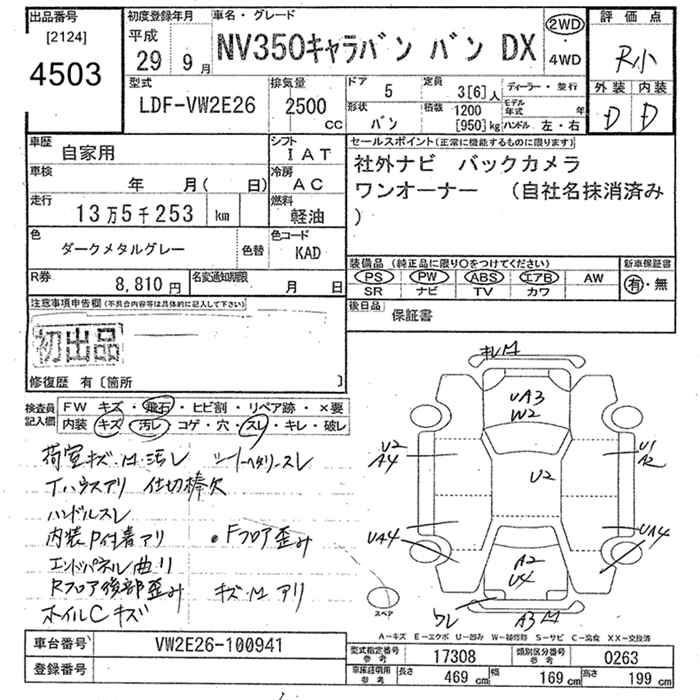 出品番号 初度登録年月 車名・グレード 2WD 評価点
[2124] 平成 NV350キャラバン バン DX ・ R小
4503 29年 9月 4WD
外装 内装
型式 排気量 ドア 5 定員 3[6]人 ディーラー・並行 D D
LDF-VW2E26 2500cc 形状 バン 積載 1200[950]kg モデル年式 年
ハンドル 左・右
車歴 自家用 シフト IAT セールスポイント(正常に機能するものに限ります)
車検 年 月( 日) 冷房 AC 社外ナビ バックカメラ
走行 13万5千253 km 燃料 軽油 ワンオーナー (自社名抹消済み
)
色 ダークメタルグレー 色替 色コード KAD
装備品(純正品に限り○をつけてください) 新車保証書
R券 8,810円 名変通知期限 月 日 PS PW ABS エアB AW 有・無
SR ナビ TV カワ
注意事項申告欄(不具合内容等は具体的に記入して下さい) 後日品 保証書
初出品
修復歴 有〔箇所 〕
検査員記入欄 FW キズ・飛石・ヒビ割・リペア跡・×要
内装 キズ・汚レ・コゲ・穴・スレ・キレ・破レ
荷室キズ・M・汚レ シートヘタリ・スレ
Tハウスアリ 仕切棒欠
ハンドルスレ
内装P付着アリ ・Fフロア歪み
エンドパネル曲り
Rフロア後部歪み キズ・M アリ
ホイルCキズ
キレM
UA3
W2
U2
A4
U1
A2
U2
UA4
UA4
A2
U4
ワレ A3M
スペア
A-キズ E-エクボ U-凹み W-補修跡 S-サビ C-腐食 XX-交換済
車台番号 VW2E26-100941
型式指定番号 参考 17308 類別区分番号 参考 0263
登録番号
長さ 469cm 幅 169cm 高さ 199cm